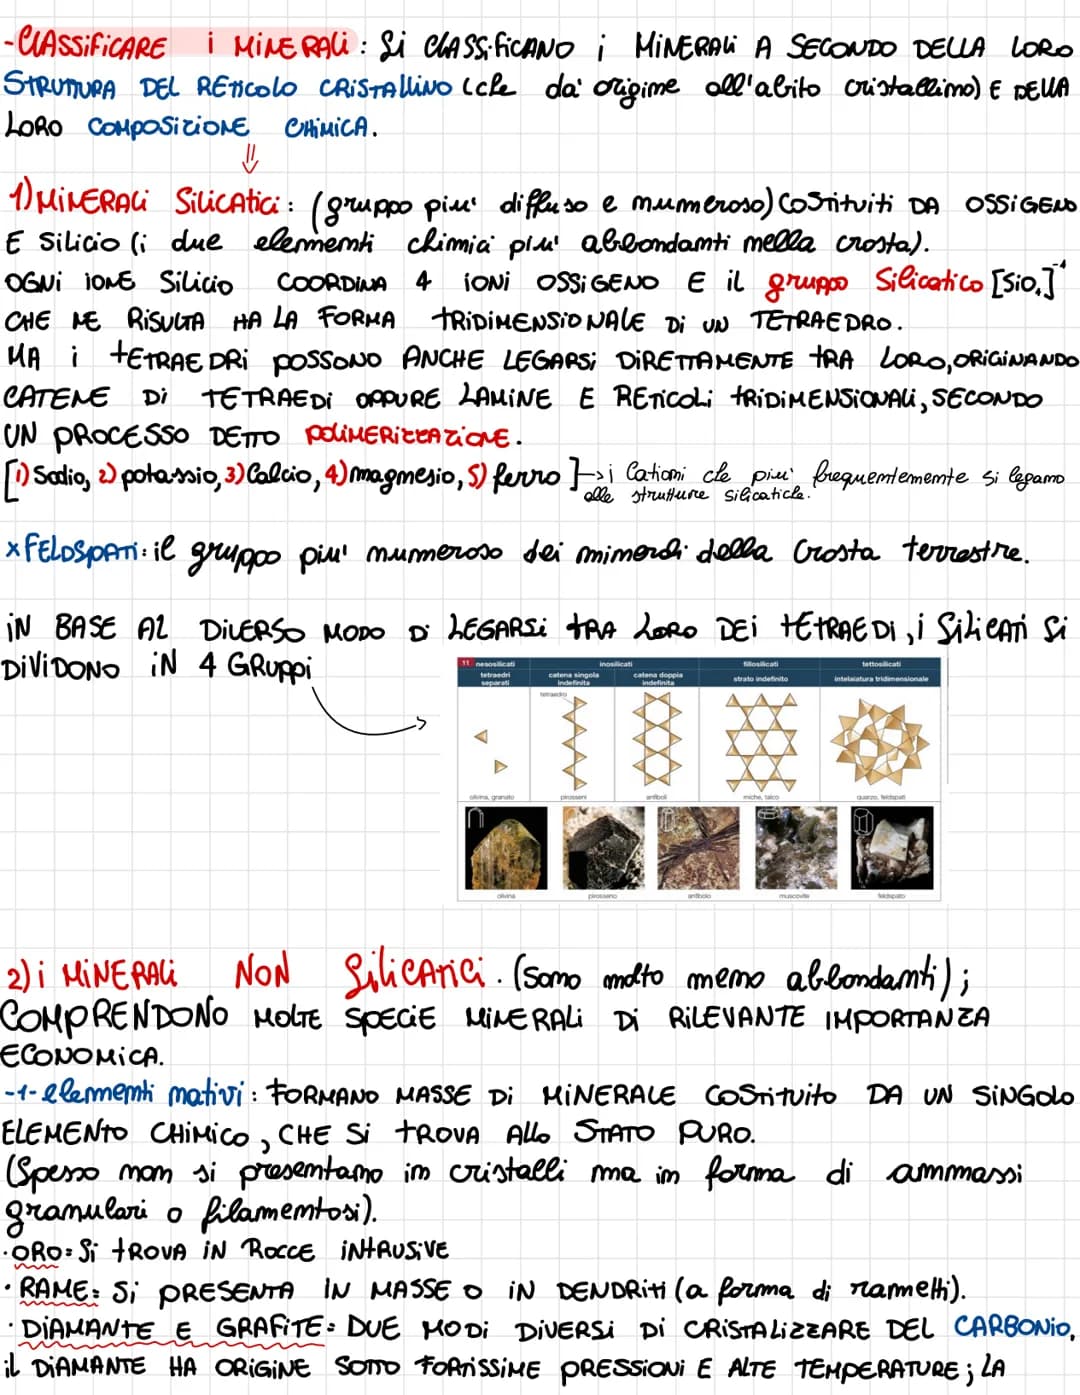 -CLASSIFICARE i MINERALI: Si CLASSIFICANO i MINERALI A SECONDO DELLA LORO
STRUTTURA DEL RETICOLO CRISTALLINO (che da' origine all'abito cristallino) E DELLA
LORO COMPOSIZIONE CHIMICA.
⇓
1) MINERALI SILICATICI: (gruppo piu' diffuso e numeroso) COSTITUITI DA OSSIGENO
E SILICIO (i due elementi chimici piu' abbondanti nella crosta).
OGNI IONE SILICIO COORDINA 4 IONI OSSIGENO E il gruppo Silicatico [SiO₄]⁻⁴
CHE NE RISULTA HA LA FORMA TRIDIMENSIONALE Di UN TETRAEDRO.
MA i TETRAEDRI POSSONO ANCHE LEGARSI DIRETTAMENTE TRA LORO, ORIGINANDO
CATENE Di TETRAEDI OPPURE LAMINE E RETICOLI TRIDIMENSIONALI, SECONDO
UN PROCESSO DETTO POLIMERIZZAZIONE.
[1) Sodio, 2) potassio, 3) Calcio, 4) magnesio, 5) ferro]→i Cationi che piu' frequentemente si legano
alle strutture silicatiche.
x FELDSPATI: il gruppo piu' numeroso dei minerali della Crosta terrestre.
IN BASE AL DIVERSO MODO Di LEGARSI TRA LORO DEI TETRAEDI, i SILICATI Si
DIVIDONO IN 4 GRUPPI
11 nesosilicati inosilicati fillosilicati tettosilicati
tetraedri separati catena singola indefinita catena doppia indefinita strato indefinito intelaiatura tridimensionale
tetraedro
olivina, granato pirosseni anfiboli miche, talco quarzo, feldspati
olivina pirosseno anfibolo muscovite feldspato
2) i MINERALI NON SILICATICI. (Sono molto meno abbondanti);
COMPRENDONO MOLTE SPECIE MINERALI Di RILEVANTE IMPORTANZA
ECONOMICA.
-1- elementi nativi: FORMANO MASSE Di MINERALE COSTITUITO DA UN SINGOLO
ELEMENTO CHIMICO, CHE Si TROVA ALLO STATO PURO.
(Spesso non si presentano in cristalli ma in forma di ammassi
granulari o filamentosi).
·ORO: Si TROVA IN ROCCE INTRUSIVE
·RAME: Si PRESENTA IN MASSE O IN DENDRITI (a forma di rametti).
·DIAMANTE E GRAFITE: DUE MODI DIVERSI Di CRISTALIZZARE DEL CARBONIO,
il DIAMANTE HA ORIGINE SOTTO FORTISSIME PRESSIONI E ALTE TEMPERATURE; LA